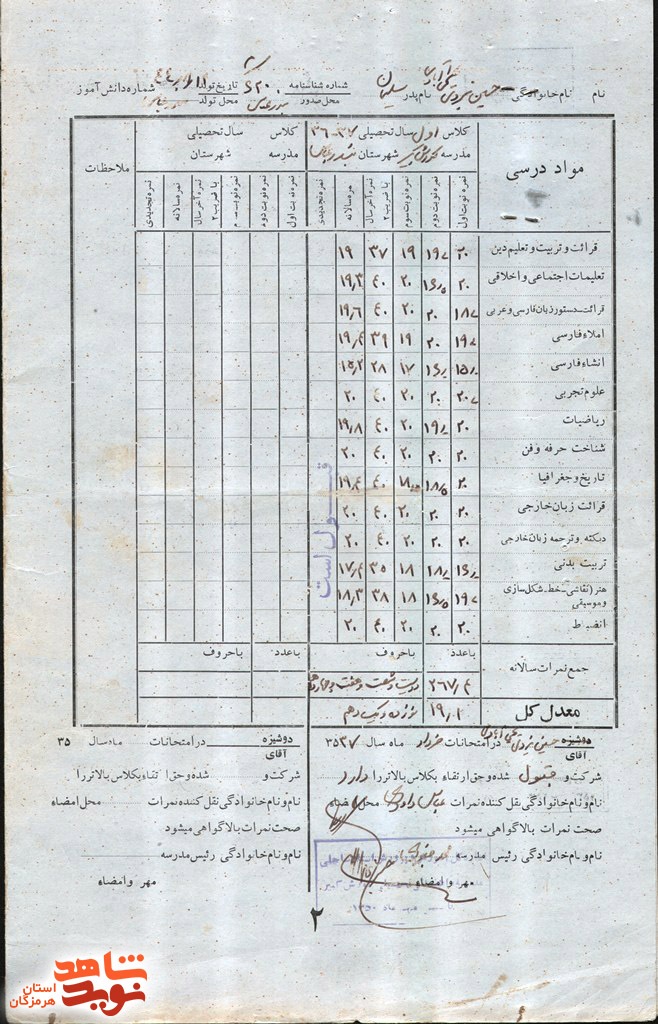 نام نام خانوادگی حسین نام پدر سلیمان شماره شناسنامه ۶۲۰ تاریخ تولد شماره دانش آموز
محل صدور محل تولد
مواد درسی
کلاس اول سال تحصیلی ۳۷-۳۶
مدرسه شهرستان بندرعباس
کلاس سال تحصیلی
مدرسه شهرستان
ملاحظات
نمره نوبت اول نمره نوبت دوم نمره نوبت سوم نمره آخر سال با ضریب ۲ نمره سالانه نمره تجدیدی نمره نوبت اول نمره نوبت دوم نمره نوبت سوم نمره آخر سال با ضریب ۲ نمره سالانه نمره تجدیدی
قرائت و تربیت و تعلیم دین ۲۰ ۱۹ ۱۹ ۳۷ ۱۹
تعلیمات اجتماعی و اخلاقی ۲۰ ۱۶/۵ ۲۰ ۴۰ ۱۹/۳
قرائت-دستور زبان فارسی و عربی ۱۸ ۲۰ ۲۰ ۴۰ ۱۹/۶
املاء فارسی ۱۹ ۲۰ ۱۹ ۳۹ ۱۹/۴
انشاء فارسی ۱۵ ۱۶ ۱۷ ۲۸ ۱۵/۲
علوم تجربی ۲۰ ۲۰ ۲۰ ۴۰ ۲۰
ریاضیات ۲۰ ۱۹ ۲۰ ۴۰ ۱۹/۸
شناخت حرفه وفن ۲۰ ۲۰ ۲۰ ۴۰ ۲۰
تاریخ و جغرافیا ۲۰ ۱۸/۵ ۱۸ ۴۰ ۱۹/۴
قرائت زبان خارجی ۲۰ ۲۰ ۲۰ ۴۰ ۲۰
دیکته و ترجمه زبان خارجی ۲۰ ۲۰ ۲۰ ۴۰ ۲۰
تربیت بدنی ۱۶ ۱۸ ۱۸ ۳۵ ۱۷/۴
هنر (نقاشی-خط-شکل سازی وموسیقی) ۱۹ ۱۶/۵ ۱۸ ۳۸ ۱۸/۳
انضباط ۲۰ ۲۰ ۲۰ ۴۰ ۲۰
قبول است
باعدد باحروف باعدد باحروف
جمع نمرات سالانه ۲۶۷/۴ دویست و شصت و هفت و چهار دهم
معدل کل ۱۹/۱ نوزده و یک دهم
دوشیزه آقای حسین در امتحانات خرداد ماه سال ۳۵۳۷
شرکت و قبول شده وحق ارتقاء بکلاس بالاتر را دارد
نام و نام خانوادگی نقل کننده نمرات محل امضاء
صحت نمرات بالا گواهی میشود
نام و نام خانوادگی رئیس مدرسه
مهر و امضاء
دوشیزه آقای در امتحانات ماه سال ۳۵
شرکت و شده وحق ارتقاء بکلاس بالاتر را
نام و نام خانوادگی نقل کننده نمرات محل امضاء
صحت نمرات بالا گواهی میشود
نام و نام خانوادگی رئیس مدرسه
مهر و امضاء
۲
نوید شاهد
استان هرمزگان